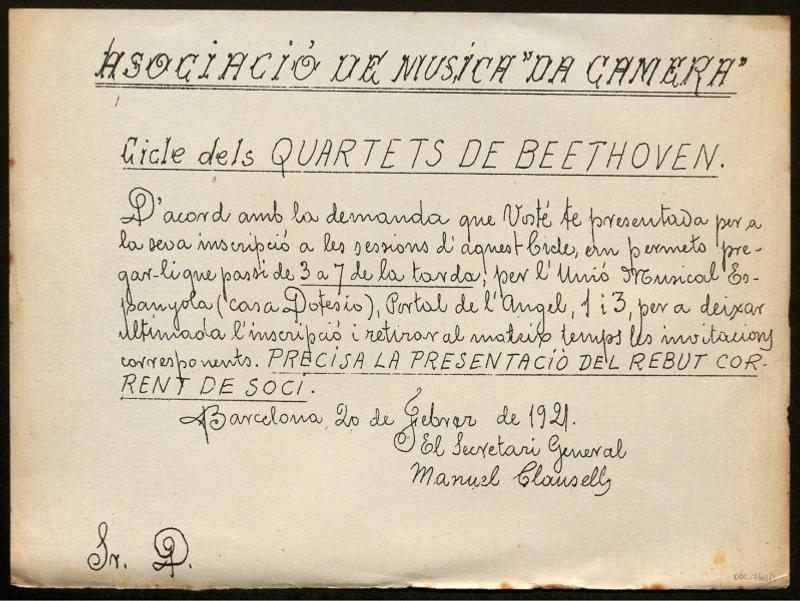 ASOCIACIÓ DE MUSICA "DA CAMERA"
Cicle dels QUARTETS DE BEETHOVEN.
D'acord amb la demanda que Vosté te presentada per a
la seva inscripció a les sessions d'aquest Cicle, em permeto pre-
gar-li que passi de 3 a 7 de la tarda, per l'Unió Musical Es-
panyola (casa Dotesio), Portal de l'Angel, 1 i 3, per a deixar
ultimada l'inscripció i retirar al mateix temps les invitacions
corresponents. PRECISA LA PRESENTACIÒ DEL REBUT COR-
RENT DE SOCI.
Barcelona 20 de Febrer de 1921.
El Secretari General
Manuel Clausells
Sr. D.